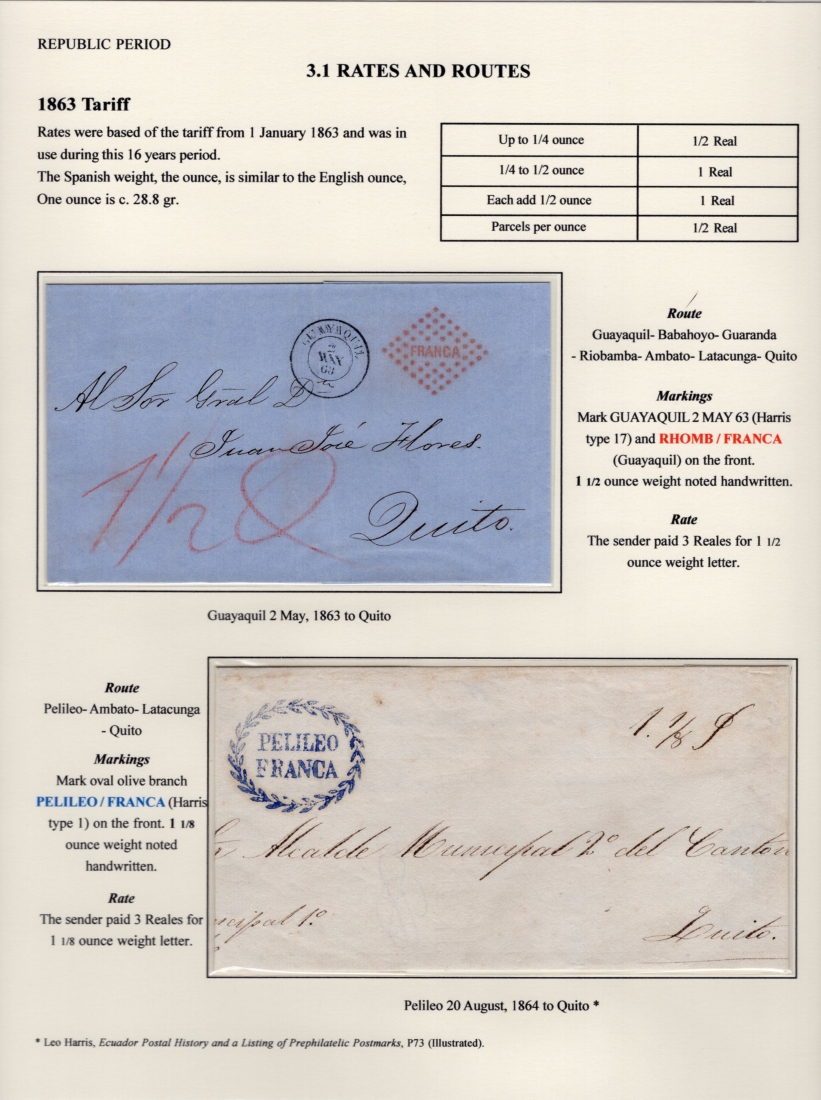 REPUBLIC PERIOD
3.1 RATES AND ROUTES
1863 Tariff
Rates were based of the tariff from 1 January 1863 and was in
use during this 16 years period.
The Spanish weight, the ounce, is similar to the English ounce,
One ounce is c. 28.8 gr.
Up to 1/4 ounce 1/2 Real
1/4 to 1/2 ounce 1 Real
Each add 1/2 ounce 1 Real
Parcels per ounce 1/2 Real
GUAYAQUIL
2
MAY
63
FRANCA
Al Sor Gral D
Juan José Flores.
1 1/2
Quito.
Route
Guayaquil- Babahoyo- Guaranda
- Riobamba- Ambato- Latacunga- Quito
Markings
Mark GUAYAQUIL 2 MAY 63 (Harris
type 17) and RHOMB / FRANCA
(Guayaquil) on the front.
1 1/2 ounce weight noted handwritten.
Rate
The sender paid 3 Reales for 1 1/2
ounce weight letter.
Guayaquil 2 May, 1863 to Quito
Route
Pelileo- Ambato- Latacunga
- Quito
Markings
Mark oval olive branch
PELILEO / FRANCA (Harris
type 1) on the front. 1 1/8
ounce weight noted
handwritten.
Rate
The sender paid 3 Reales for
1 1/8 ounce weight letter.
PELILEO
FRANCA
1. 1/8
Alcalde Municipal 2º del Canton
cipal 1º
Quito.
Pelileo 20 August, 1864 to Quito *
* Leo Harris, Ecuador Postal History and a Listing of Prephilatelic Postmarks, P73 (Illustrated).